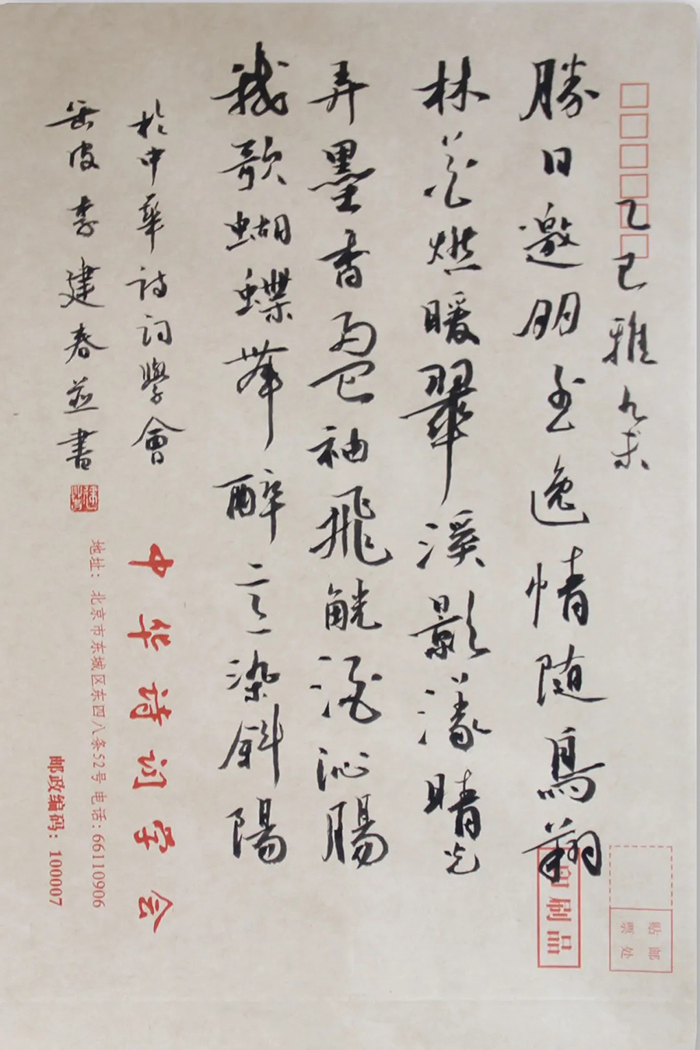 乙巳雅
勝日邀朋至逸情随鳥翔
林花燃暖翠溪影漾晴光
弄墨香盈袖飛觥酒沁腸
我歌蝴蝶舞醉意染斜陽
於中華詩詞學會
李建春並書
中华诗词学会
地址：北京市东城区东四八条52号 电话:66110906
邮政编码：100007
印刷品
贴邮
票处